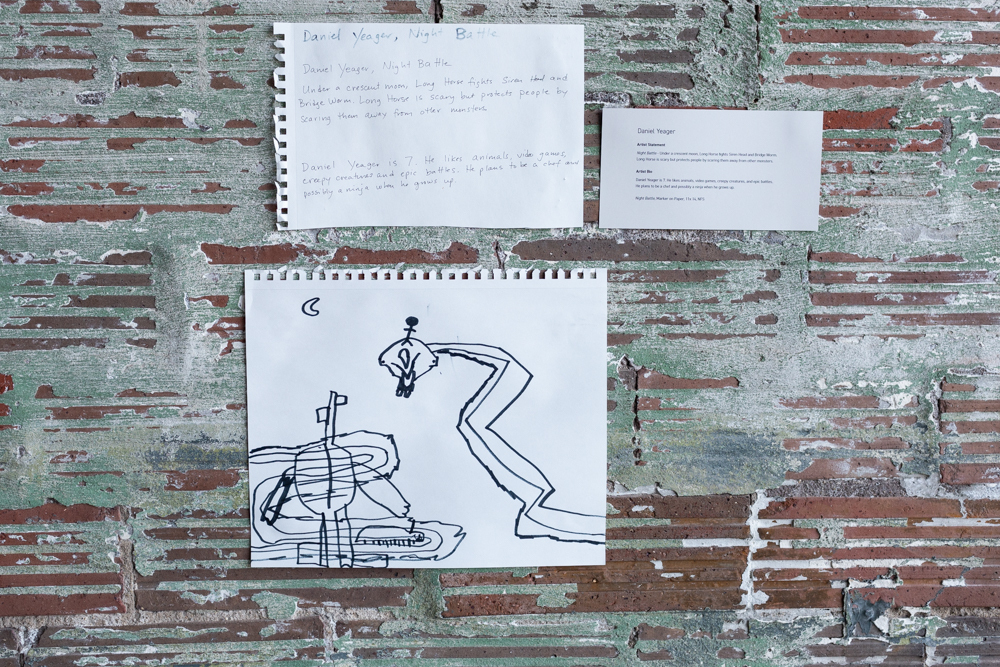 Daniel Yeager, Night Battle
Daniel Yeager, Night Battle
Under a crescent moon, Long Horse fights Siren Head and
Bridge Worm. Long Horse is scary but protects people by
scaring them away from other monsters.
Daniel Yeager is 7. He likes animals, video games,
creepy creatures and epic battles. He plans to be a chef and
possibly a ninja when he grows up.
Daniel Yeager
Artist Statement
Night Battle - Under a crescent moon, Long Horse fights Siren Head and Bridge Worm.
Long Horse is scary but protects people by scaring them away from other monsters.
Artist Bio
Daniel Yeager is 7. He likes animals, video games, creepy creatures, and epic battles.
He plans to be a chef and possibly a ninja when he grows up.
Night Battle, Marker on Paper, 11x14, NFS